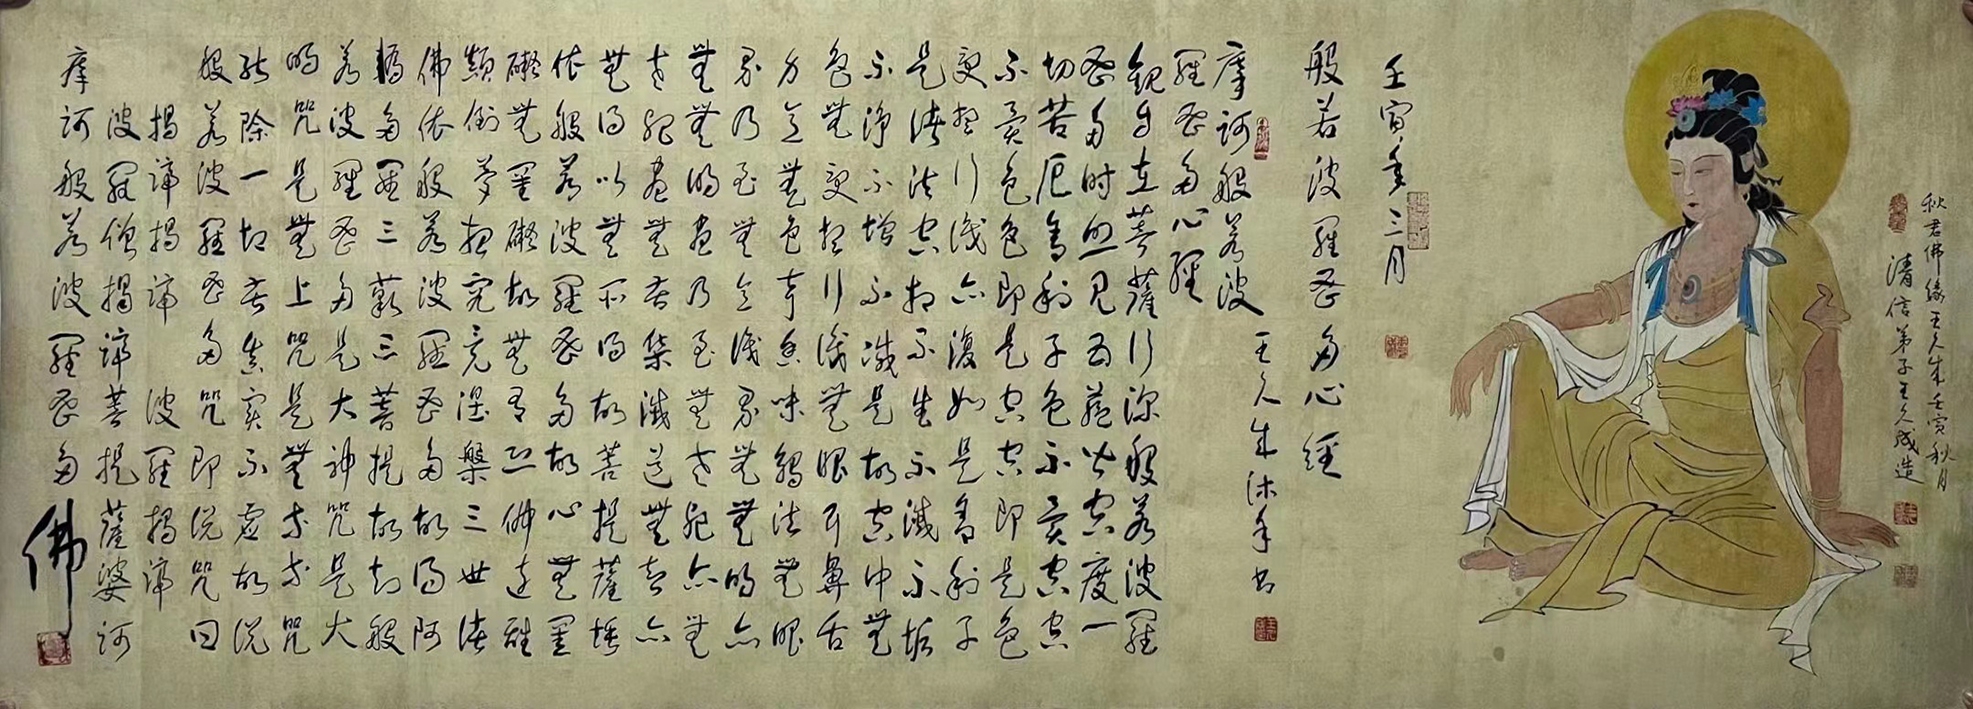 秋君佛緣王久成壬寅秋月
清信弟子王久成造
壬寅年三月
般若波羅蜜多心經
王久成沐手書
摩訶般若波
羅蜜多心經
觀自在菩薩行深般若波羅
蜜多時照見五蘊皆空度一
切苦厄舍利子色不異空空
不異色色即是空空即是色
受想行識亦復如是舍利子
是諸法空相不生不滅不垢
不淨不增不減是故空中無
色無受想行識無眼耳鼻舌
身意無色聲香味觸法無眼
界乃至無意識界無無明亦
無無明盡乃至無老死亦無
老死盡無苦集滅道無智亦
無得以無所得故菩提薩埵
依般若波羅蜜多故心無罣
礙無罣礙故無有恐怖遠離
顛倒夢想究竟涅槃三世諸
佛依般若波羅蜜多故得阿
耨多羅三藐三菩提故知般
若波羅蜜多是大神咒是大
明咒是無上咒是無等等咒
能除一切苦真實不虛故說
般若波羅蜜多咒即說咒曰
揭諦揭諦 波羅揭諦
波羅僧揭諦菩提薩婆訶
摩訶般若波羅蜜多
佛